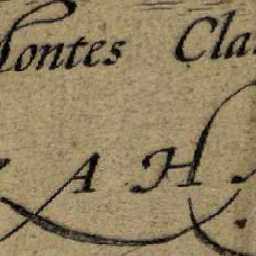 Montes Cla
A H